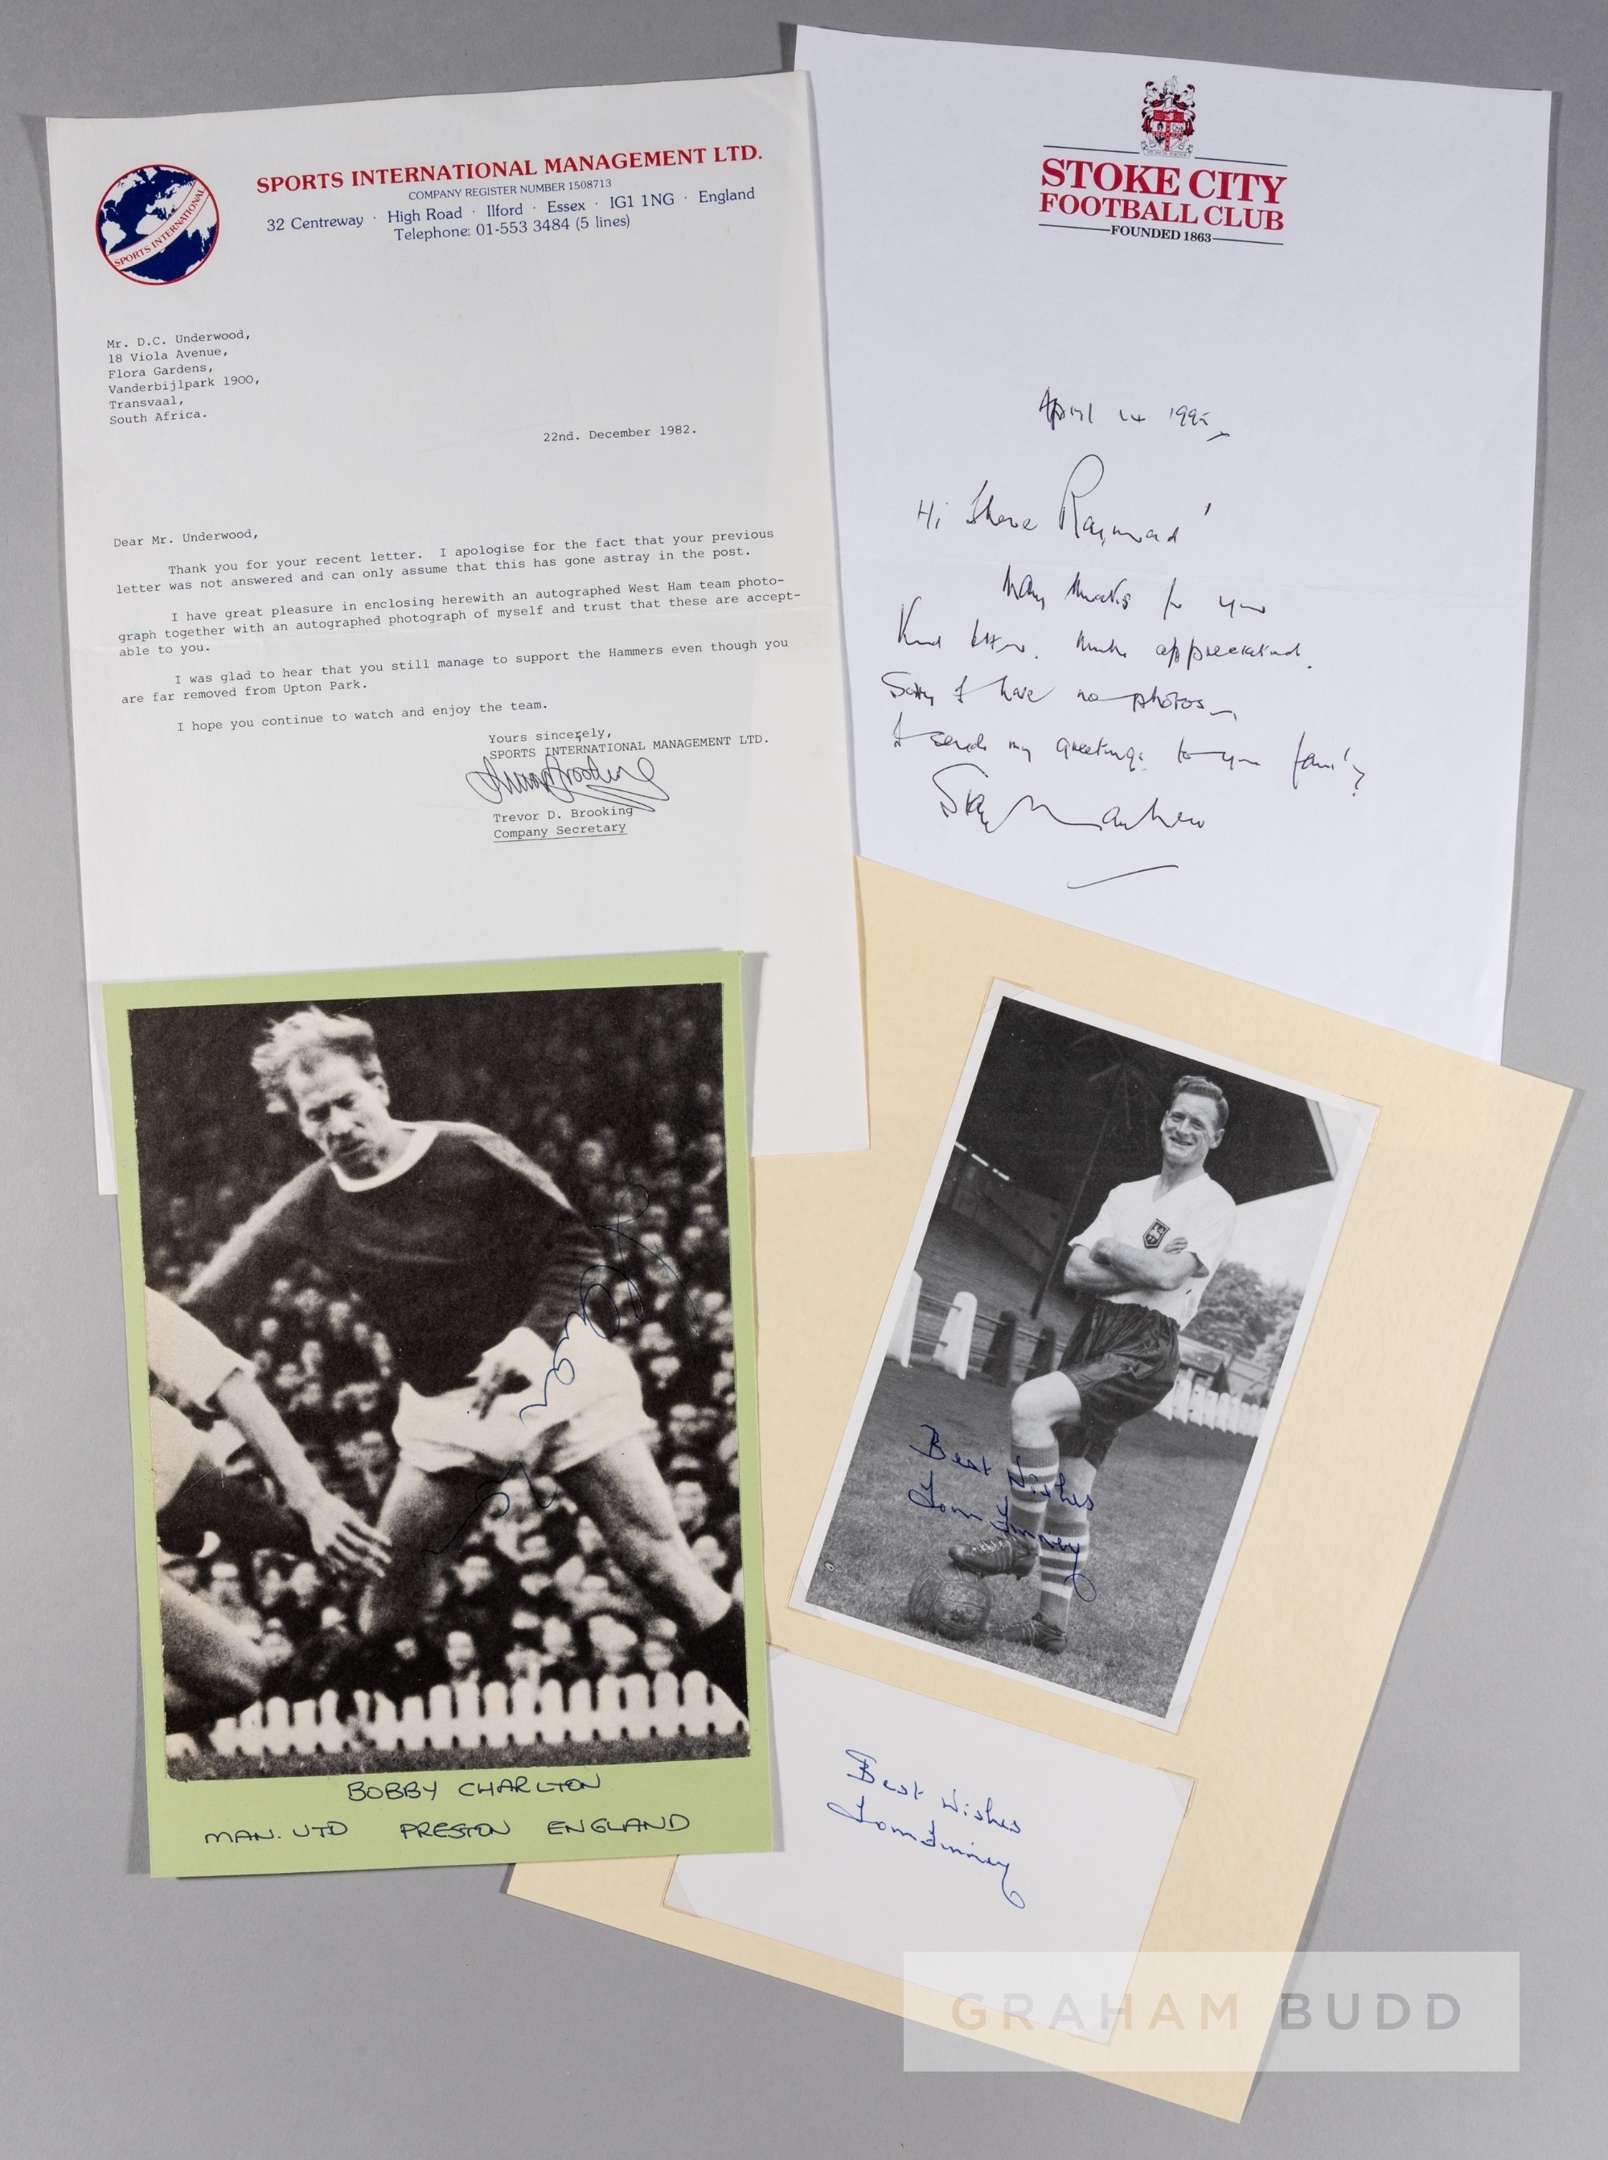 SPORTS INTERNATIONAL MANAGEMENT LTD.
COMPANY REGISTER NUMBER 1508713
32 Centreway · High Road · Ilford · Essex · IG1 1NG · England
Telephone: 01-553 3484 (5 lines)
SPORTS INTERNATIONAL
Mr. D.C. Underwood,
18 Viola Avenue,
Flora Gardens,
Vanderbijlpark 1900,
Transvaal,
South Africa.
22nd. December 1982.
Dear Mr. Underwood,
Thank you for your recent letter. I apologise for the fact that your previous
letter was not answered and can only assume that this has gone astray in the post.
I have great pleasure in enclosing herewith an autographed West Ham team photo-
graph together with an autographed photograph of myself and trust that these are accept-
able to you.
I was glad to hear that you still manage to support the Hammers even though you
are far removed from Upton Park.
I hope you continue to watch and enjoy the team.
Yours sincerely,
SPORTS INTERNATIONAL MANAGEMENT LTD.
Trevor D. Brooking
Company Secretary
STOKE CITY
FOOTBALL CLUB
FOUNDED 1863
April 14 1995
Hi Raymond
Many thanks for your
Kind letter. Much appreciated.
Sorry I have no photos
I send my greetings to your family
Stan Matthews
BOBBY CHARLTON
MAN. UTD PRESTON ENGLAND
Best Wishes
Tom Finney
Best Wishes
Tom Finney
GRAHAM BUDD